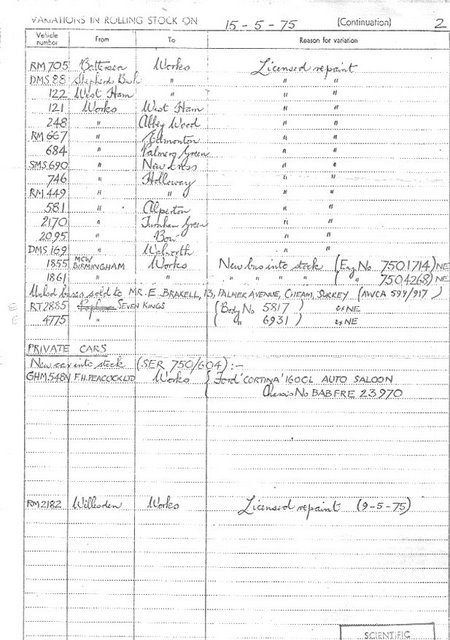 VARIATIONS IN ROLLING STOCK ON 15-5-75 (Continuation) 2
Vehicle number From To Reason for variation
RM 705 Battersea Works Licensed repaint
DMS 88 Shepherds Bush " " "
122 West Ham " " "
121 Works West Ham " "
248 " Abbey Wood " "
RM 667 " Edmonton " "
684 " Palmers Green " "
SMS 690 " New Cross " "
746 " Holloway " "
RM 449 " " " "
581 " Alperton " "
2170 " Turnham Green " "
2095 " Bow " "
DMS 169 " Walworth " "
1855 MCW BIRMINGHAM Works New bus into stock (Eng No 7501714) NE
1861 " " " " " " " 7504268) NE
buses sold to MR. E. BRAKELL, 13, PALMER AVENUE, CHEAM, SURREY (AWCA 594/917)
RT 2885 SEVEN KINGS (Body No 5817) NE
4775 " ( " 6931) NE
PRIVATE CARS
New car into stock (SER 750/604) :-
GHM 548N F.H. PEACOCK LTD Works Ford 'CORTINA' 1600L AUTO SALOON
Chassis No BABFRE 23970
RM 2182 Willesden Works Licensed repaint (9-5-75)
SCIENTIFIC